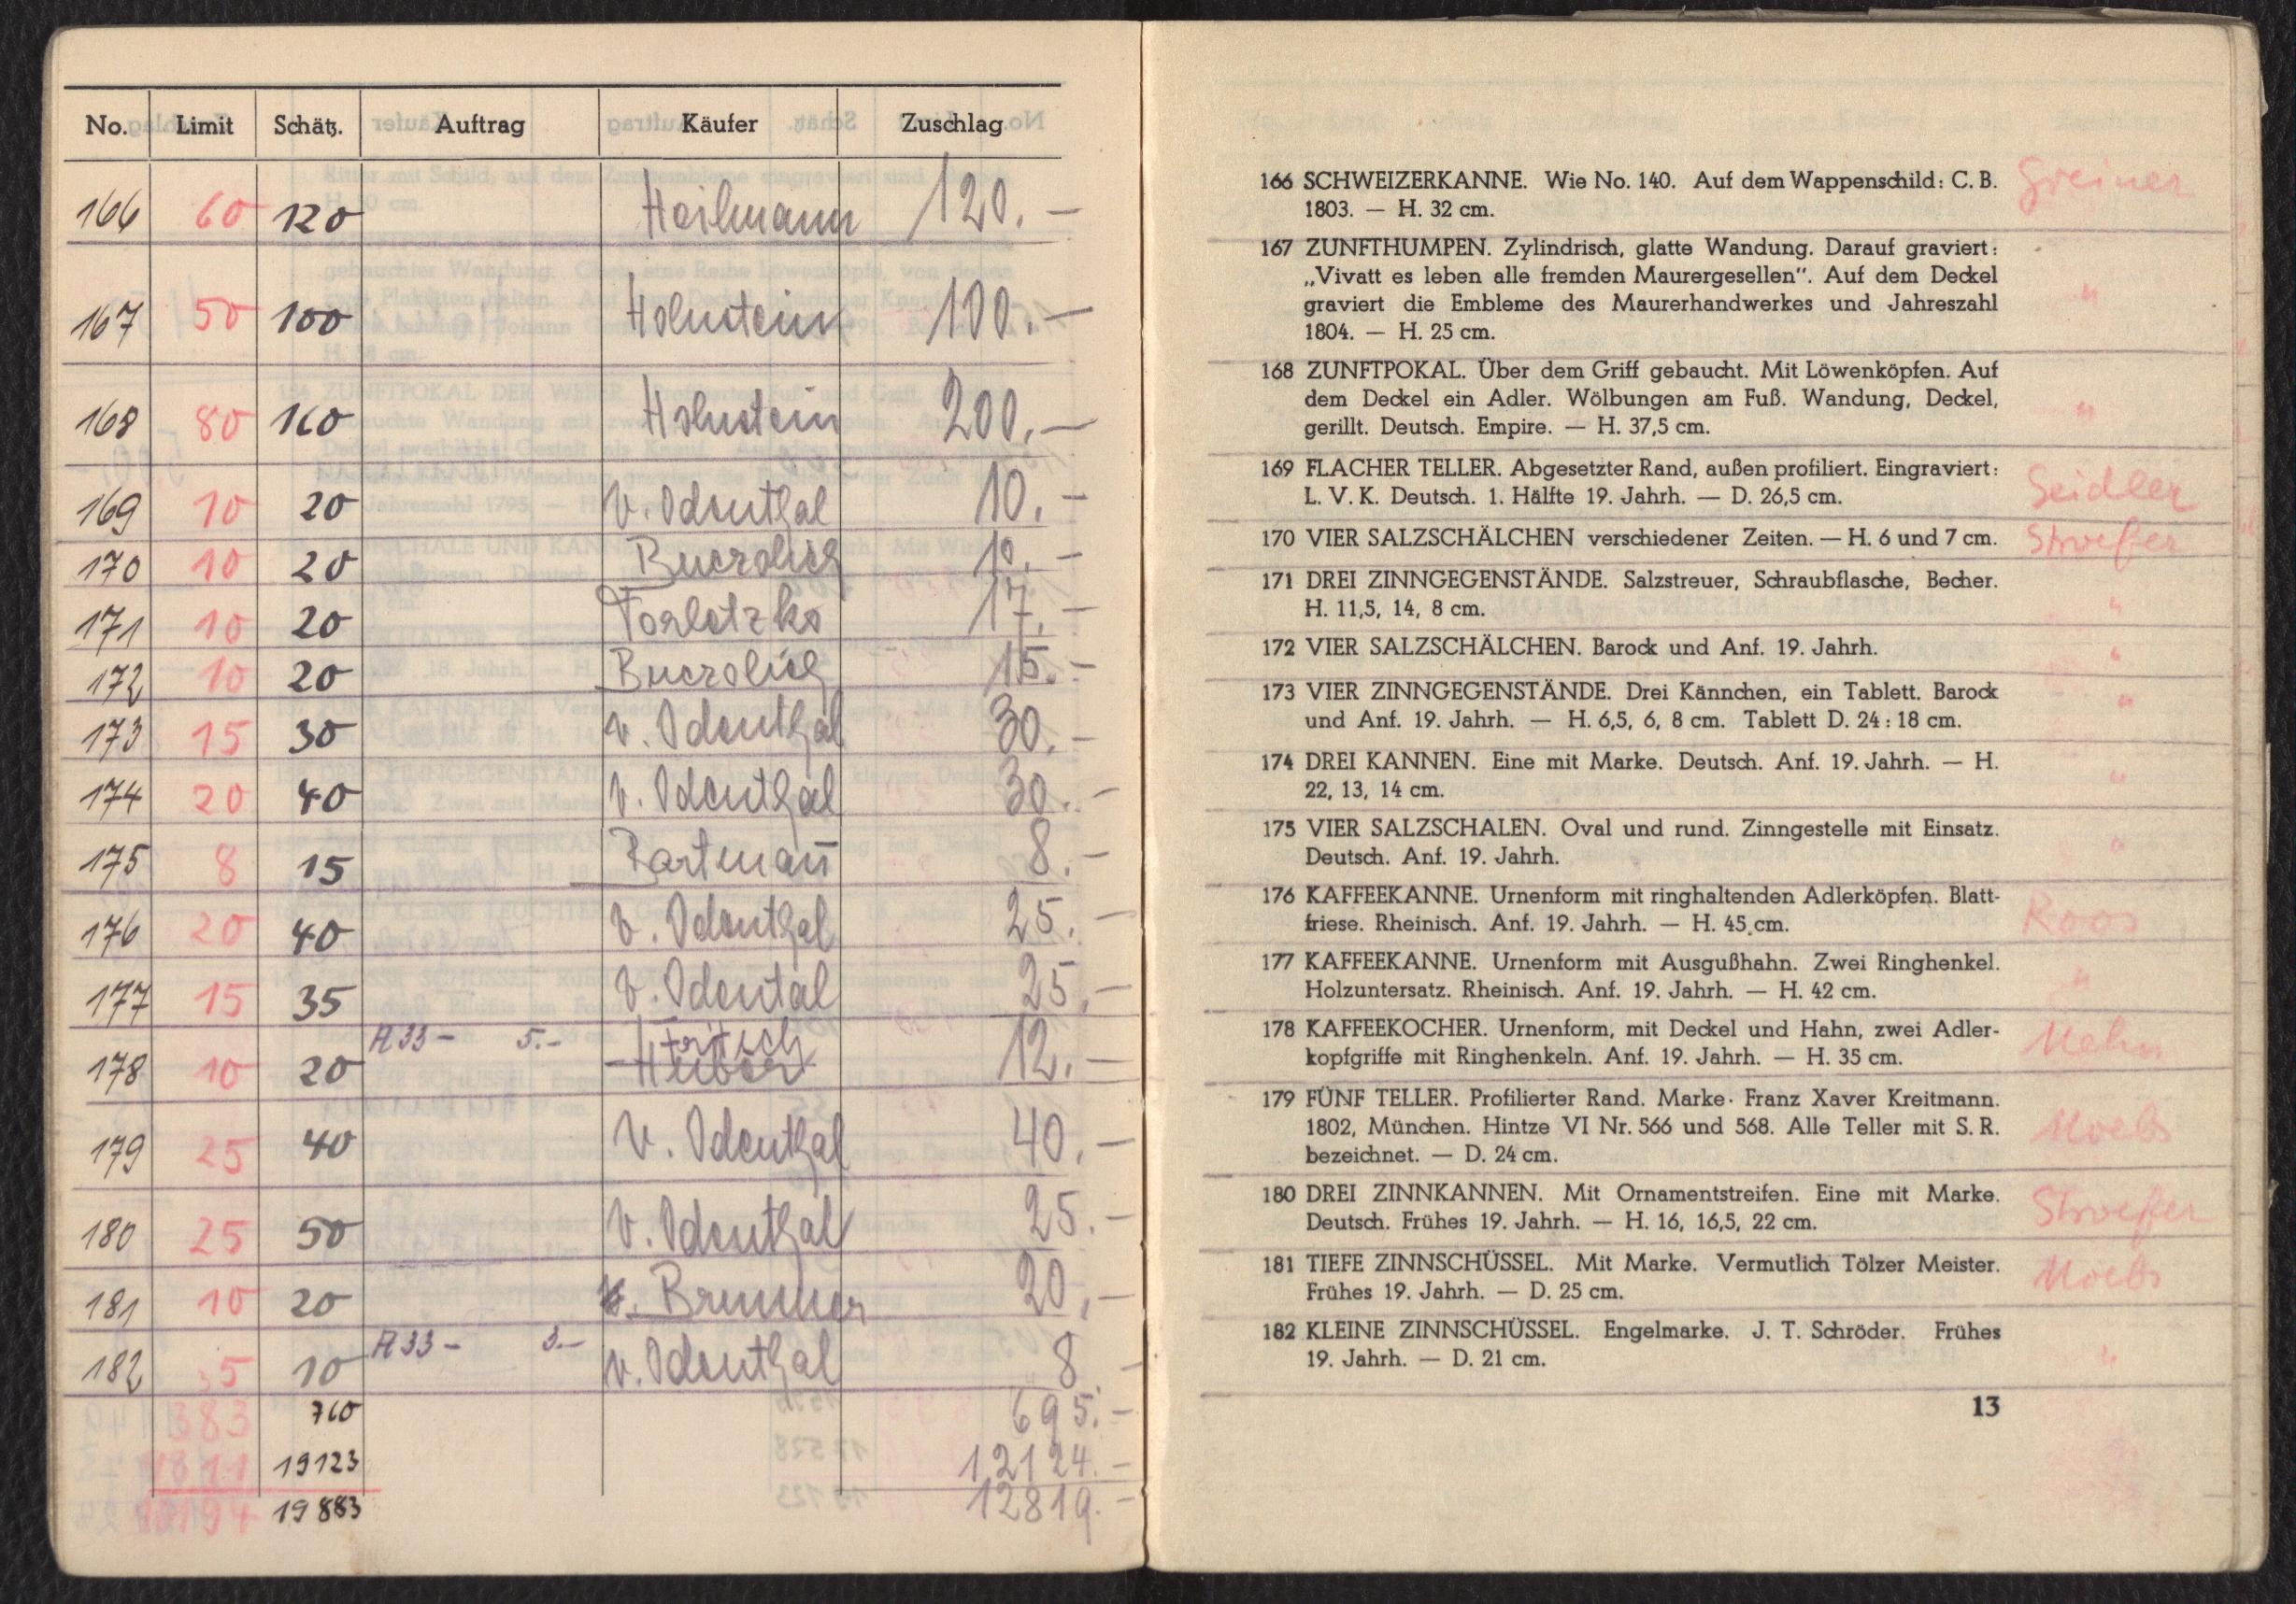 No. Limit Schätz. Auftrag Käufer Zuschlag
166 60 120 Heilmann 120.–
167 50 100 Holnstein 100.–
168 80 160 Holnstein 200.–
169 10 20 v. Odenthal 10.–
170 10 20 10.–
171 10 20 17.–
172 10 20 15.–
173 15 30 v. Odenthal 30.–
174 20 40 v. Odenthal 30.–
175 8 15 8.–
176 20 40 v. Odenthal 25.–
177 15 35 v. Odental 25.–
A 33 – 5.– Fritsch
178 10 20 Huber 12.–
179 25 40 v. Odenthal 40.–
180 25 50 v. Odenthal 25.–
181 10 20 Brunner 20.–
A 33 – 3.–
182 5 10 v. Odenthal 8 –
383 760 695.–
19123 12124.–
19883 12819.–
166 SCHWEIZERKANNE. Wie No. 140. Auf dem Wappenschild: C. B. Greiner
1803. — H. 32 cm.
167 ZUNFTHUMPEN. Zylindrisch, glatte Wandung. Darauf graviert:
„Vivatt es leben alle fremden Maurergesellen“. Auf dem Deckel
graviert die Embleme des Maurerhandwerkes und Jahreszahl "
1804. — H. 25 cm.
168 ZUNFTPOKAL. Über dem Griff gebaucht. Mit Löwenköpfen. Auf
dem Deckel ein Adler. Wölbungen am Fuß. Wandung, Deckel, "
gerillt. Deutsch. Empire. — H. 37,5 cm.
169 FLACHER TELLER. Abgesetzter Rand, außen profiliert. Eingraviert:
L. V. K. Deutsch. 1. Hälfte 19. Jahrh. — D. 26,5 cm. Seidler
170 VIER SALZSCHÄLCHEN verschiedener Zeiten. — H. 6 und 7 cm.
171 DREI ZINNGEGENSTÄNDE. Salzstreuer, Schraubflasche, Becher.
H. 11,5, 14, 8 cm. "
172 VIER SALZSCHÄLCHEN. Barock und Anf. 19. Jahrh. "
173 VIER ZINNGEGENSTÄNDE. Drei Kännchen, ein Tablett. Barock "
und Anf. 19. Jahrh. — H. 6,5, 6, 8 cm. Tablett D. 24 : 18 cm.
174 DREI KANNEN. Eine mit Marke. Deutsch. Anf. 19. Jahrh. — H. "
22, 13, 14 cm.
175 VIER SALZSCHALEN. Oval und rund. Zinngestelle mit Einsatz. "
Deutsch. Anf. 19. Jahrh.
176 KAFFEEKANNE. Urnenform mit ringhaltenden Adlerköpfen. Blatt-
friese. Rheinisch. Anf. 19. Jahrh. — H. 45 cm. Roos
177 KAFFEEKANNE. Urnenform mit Ausgußhahn. Zwei Ringhenkel. "
Holzuntersatz. Rheinisch. Anf. 19. Jahrh. — H. 42 cm.
178 KAFFEEKOCHER. Urnenform, mit Deckel und Hahn, zwei Adler-
kopfgriffe mit Ringhenkeln. Anf. 19. Jahrh. — H. 35 cm.
179 FÜNF TELLER. Profilierter Rand. Marke · Franz Xaver Kreitmann.
1802, München. Hintze VI Nr. 566 und 568. Alle Teller mit S. R.
bezeichnet. — D. 24 cm.
180 DREI ZINNKANNEN. Mit Ornamentstreifen. Eine mit Marke.
Deutsch. Frühes 19. Jahrh. — H. 16, 16,5, 22 cm.
181 TIEFE ZINNSCHÜSSEL. Mit Marke. Vermutlich Tölzer Meister.
Frühes 19. Jahrh. — D. 25 cm.
182 KLEINE ZINNSCHÜSSEL. Engelmarke. J. T. Schröder. Frühes
19. Jahrh. — D. 21 cm. "
13